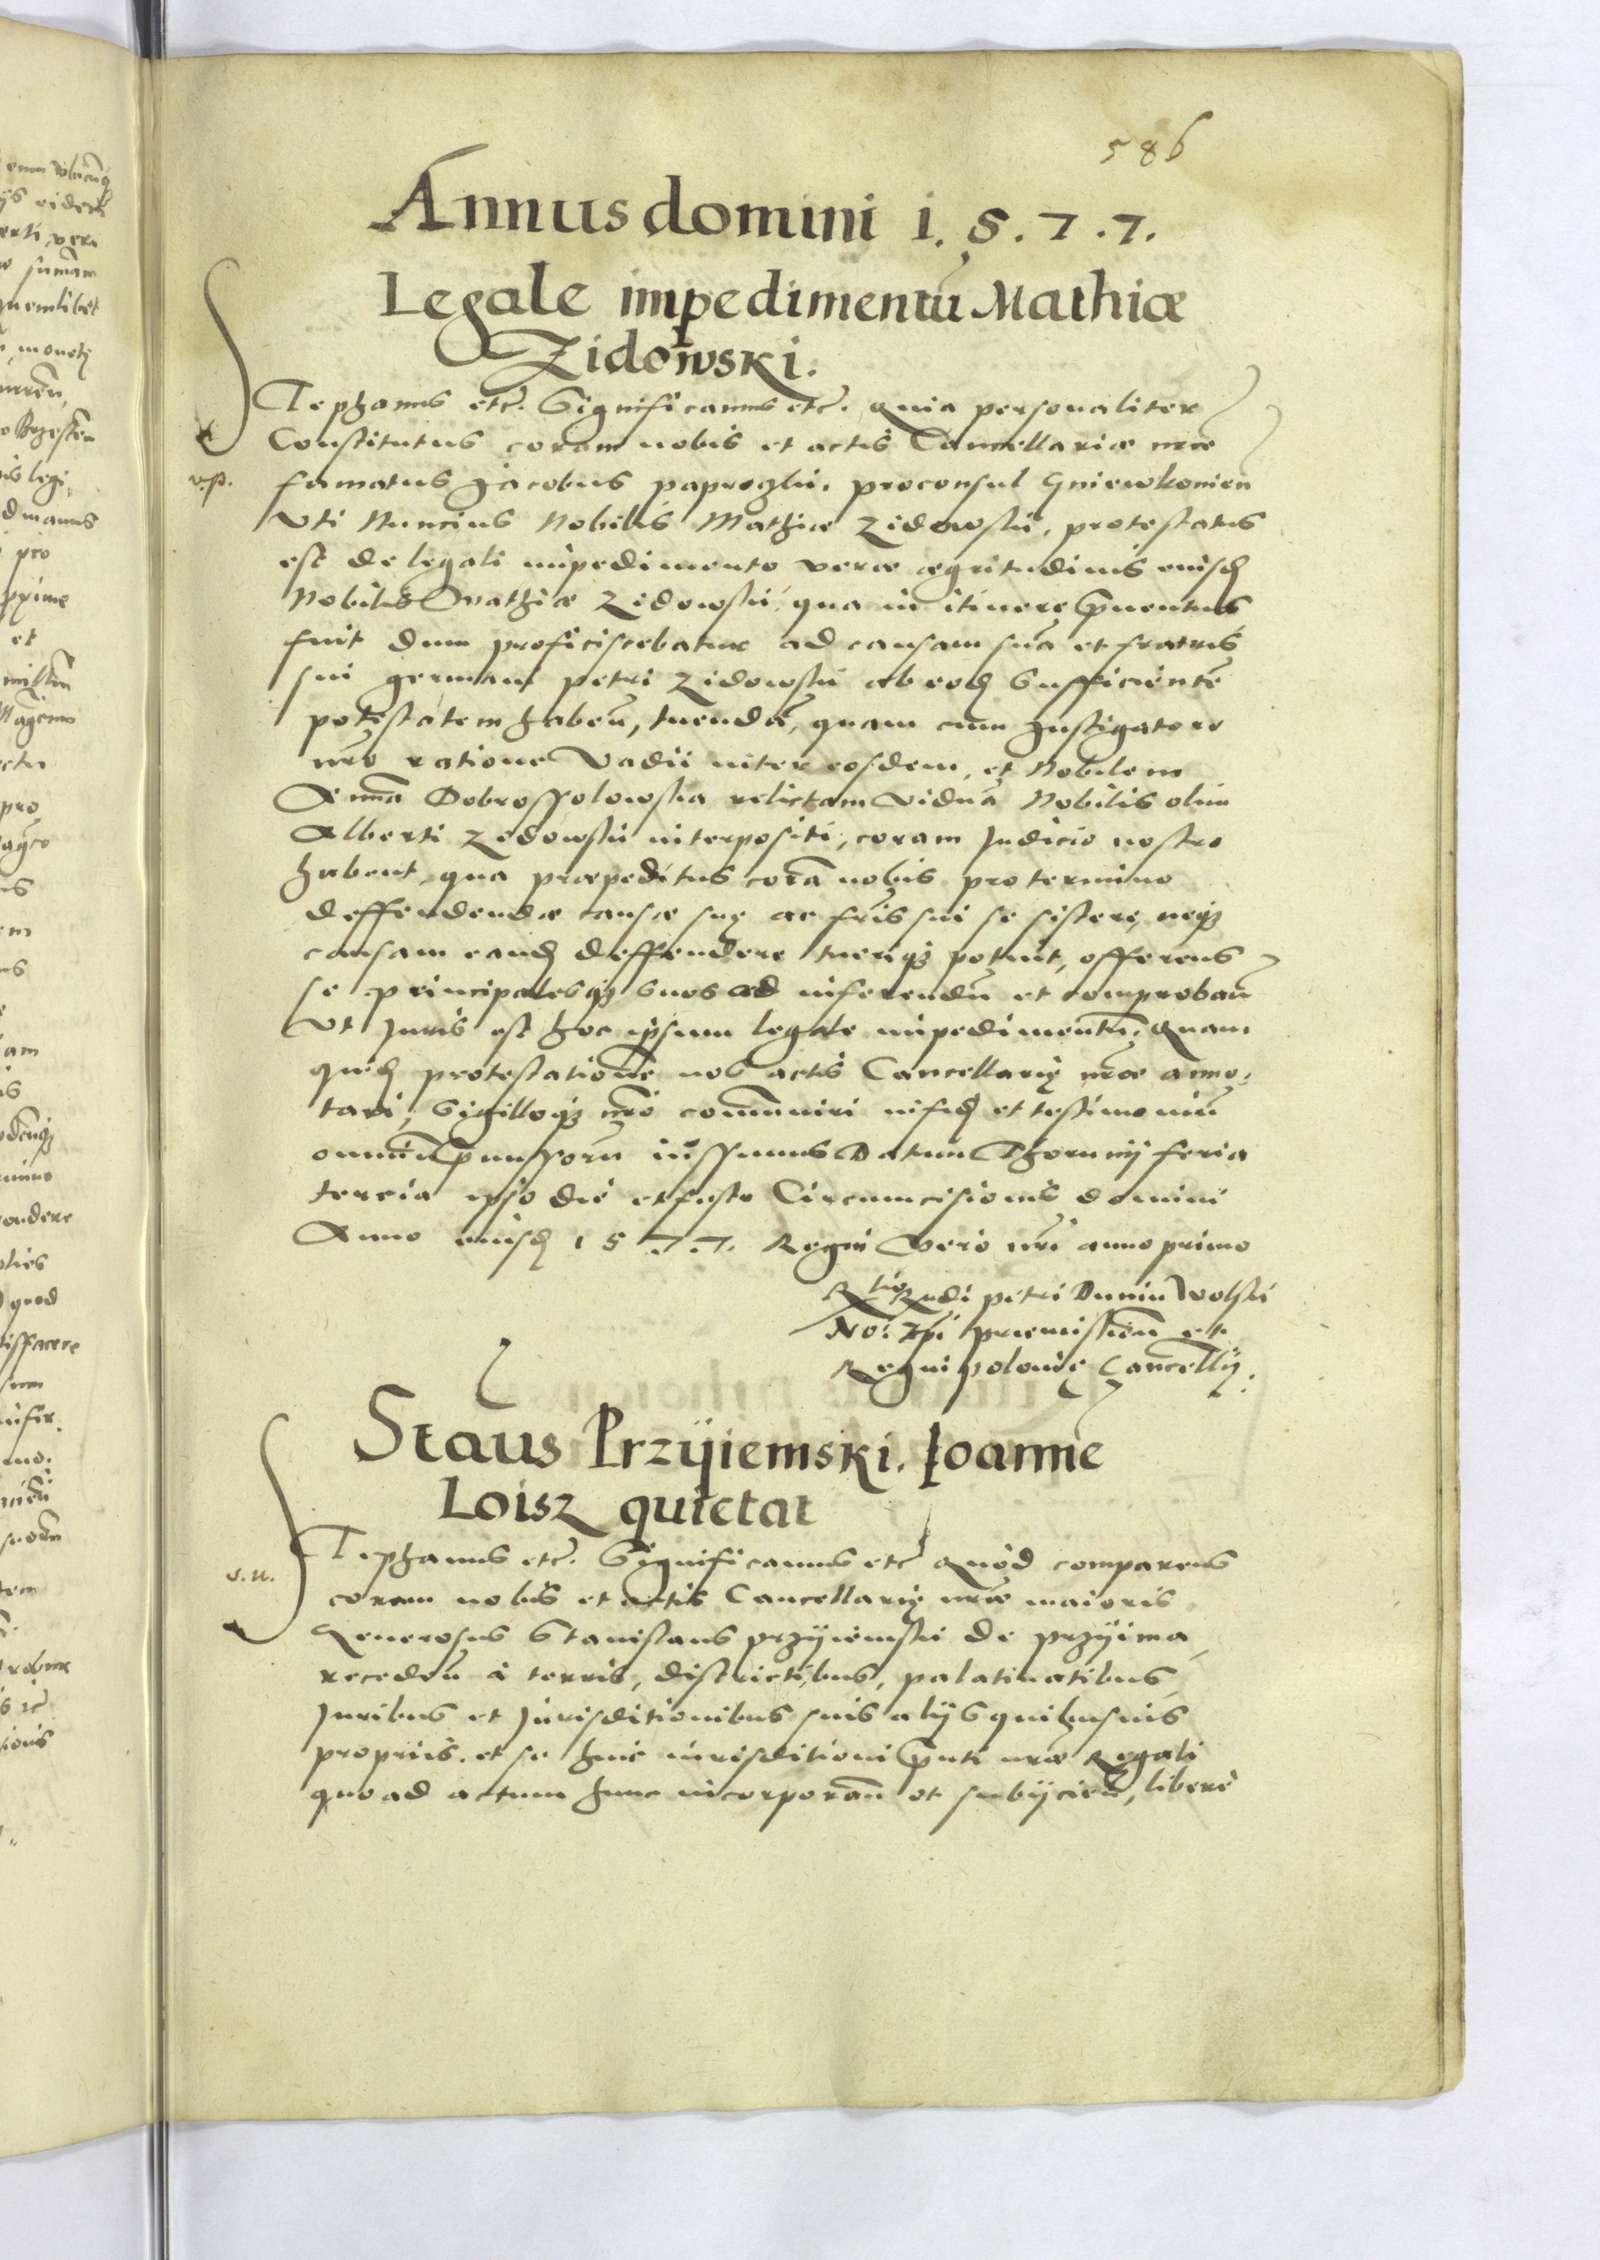 586
Annus domini 1.5.7.7.
Legale impedimentū Mathiæ
Zidowski.
STephanus etc. Significamus etc. Quia personaliter
Constitutus coram nobis et actis Cancellariæ nræ
v.p. famatus Jacobus paprozki. proconsul Gniewkowien
Vti Nuncius Nobilis Mathiæ Zidowski, protestatus
est de legali impedimento veræ ægritudinis eiusd
Nobilis Mathiæ Zidowski, qua in itinere puentus
fuit dum proficiscebatur ad causam suā et fratris
sui germani petri Zidowski ab eod Sufficientē
potestatem habeñ, tuendā, quam cum Instigatore
nro ratione Vadii inter eosdem, et Nobilem
Annā Dobrossolowska relictam viduā Nobilis olim
Alberti Zidowski interpositi, coram Judicio nostro
habent, qua præpeditus corā nobis pro termino
deffendendæ causæ suę ac fris sui se sistere, neqz
causam eand deffendere tueriqz potuit, offerens
se principalesqz suos ad inferendū et comprobañ
Vt Juris est hoc ipsum legale impedimentū, Quam
quid protestationē nos actis Cancellarię nræ anno-
tari, Sigilloqz nro communiri in fid et testimoniū
omniū pmissorū iussimus Datum Thorunij feria
tercia ipso die et festo Circumcisionis domini
Anno eiusd 1577. Regni Vero nri anno primo
Rltio Rndi petri Dunin Wolski
No: Epi præmislieñ et
Regni polonię Cancellrij.
Staus Przÿiemski. Joanne
Loisz quietat
s.u. STephanus etc. Significamus etc Quod comparens
coram nobis et actis Cancellarię nræ maioris
Generosus Stanislaus przyiemski de przyima,
recedeñ à terris, districtibus, palatinatibus
Juribus et Jurisditionibus suis alijs quibusuis
propriis. et se huic iurisditioni pnti nræ Regali
quo ad actum hunc incorporañ et subijcieñ, liberè